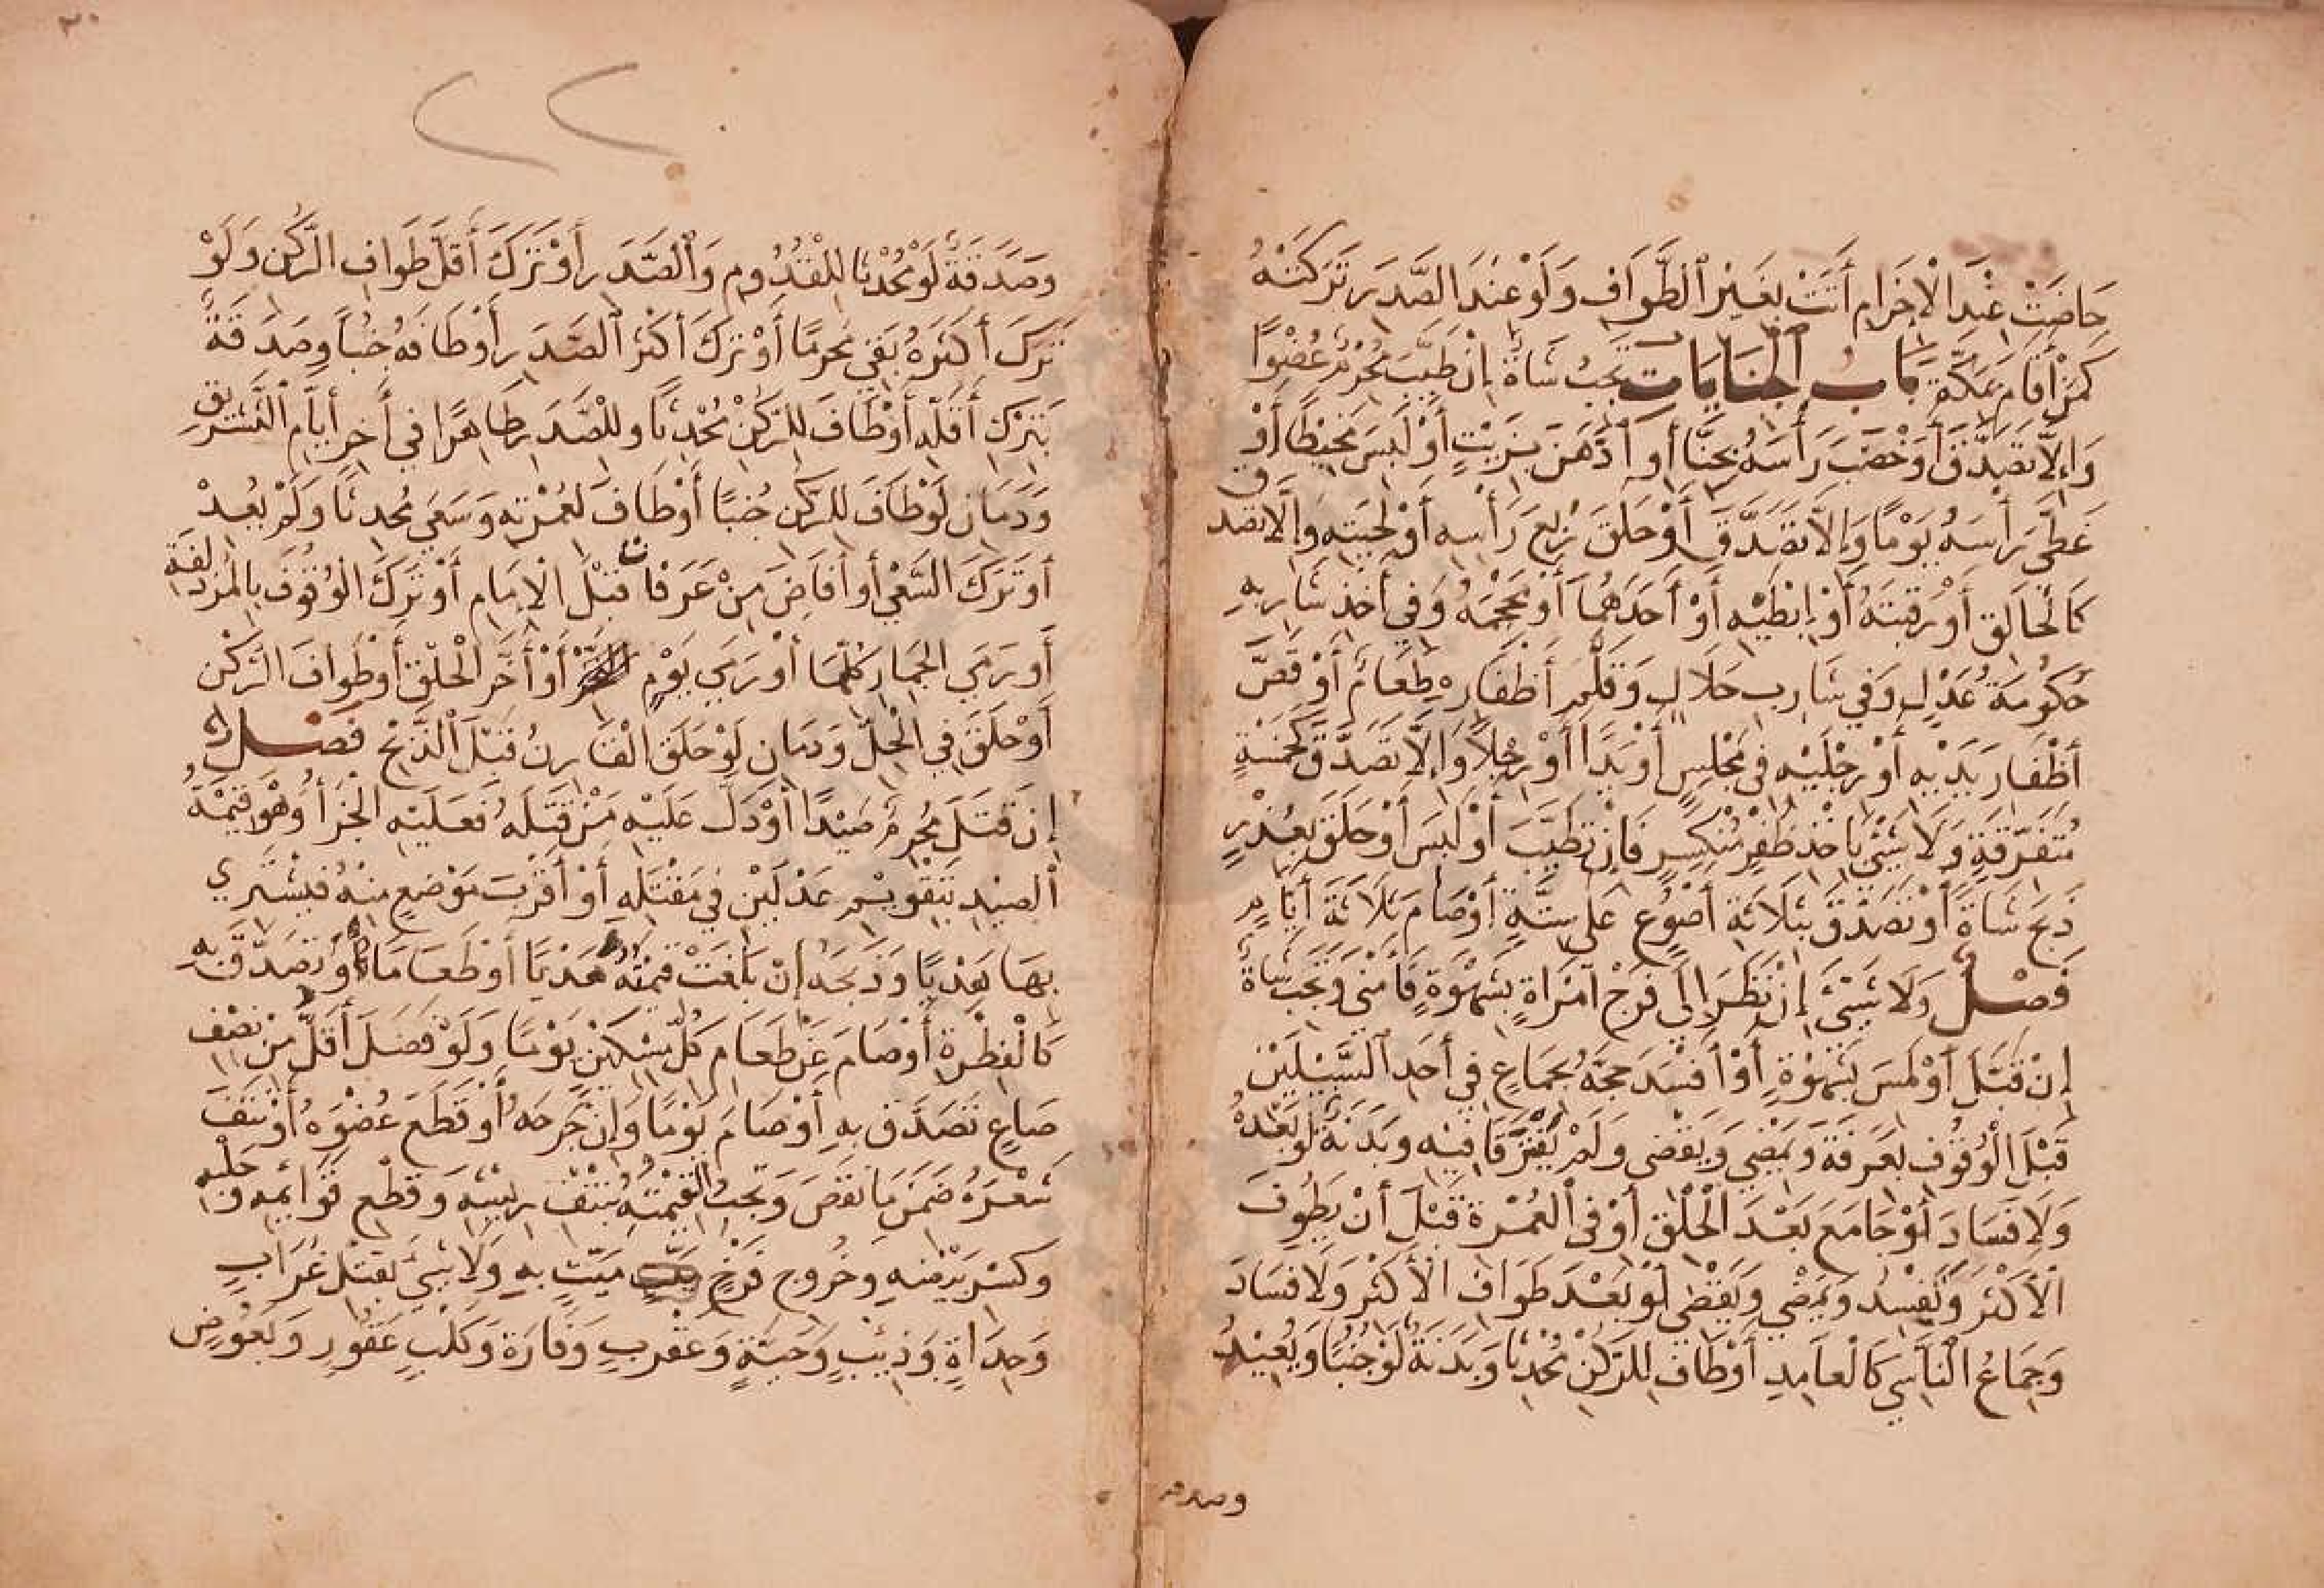 حَاضَتْ عِنْدَ الْإِحْرَامِ أَتَتْ بِغَيْرِ الطَّوَافِ وَلَوْ عِنْدَ الصَّدَرِ تَرَكَتْهُ
كَمَنْ أَقَامَ بِمَكَّةَ بَابُ الْجِنَايَاتِ تَجِبُ شَاةٌ إِنْ طَيَّبَ مُحْرِمٌ عُضْوًا
وَإِلَّا تَصَدَّقَ أَوْ خَضَبَ رَأْسَهُ بِحِنَّا أَوِ ادَّهَنَ بِزَيْتٍ أَوْ لَبِسَ مَخِيطًا أَوْ
غَطَّى رَأْسَهُ يَوْمًا وَإِلَّا تَصَدَّقَ أَوْ حَلَقَ رُبْعَ رَأْسِهِ أَوْ لِحْيَتِهِ وَإِلَّا تَصَدَّقَ
كَالْحَالِقِ أَوْ رَقَبَتَهُ أَوْ إِبْطَيْهِ أَوْ أَحَدَهُمَا أَوْ مَحْجَمَهُ وَفِي أَخْذِ شَارِبِهِ
حُكُومَةُ عَدْلٍ وَفِي شَارِبِ حَلَالٍ وَقَلْمِ أَظْفَارِهِ طَعَامٌ أَوْ قَصَّ
أَظْفَارَ يَدَيْهِ أَوْ رِجْلَيْهِ فِي مَجْلِسٍ أَوْ يَدًا أَوْ رِجْلًا وَإِلَّا تَصَدَّقَ كَخَمْسَةٍ
مُتَفَرِّقَةٍ وَلَا شَيْئَ بِأَخْذِ ظُفْرٍ مُنْكَسِرٍ فَإِنْ تَطَيَّبَ أَوْ لَبِسَ أَوْ حَلَقَ بِعُذْرٍ
ذَبَحَ شَاةً أَوْ تَصَدَّقَ بِثَلَاثَةِ أَصْوُعٍ عَلَى سِتَّةٍ أَوْ صَامَ ثَلَاثَةَ أَيَّامٍ
فَصْلٌ وَلَا شَيْئَ إِنْ نَظَرَ إِلَى فَرْجِ امْرَأَةٍ بِشَهْوَةٍ فَأَمْنَى وَتَجِبُ شَاةٌ
إِنْ قَبَّلَ أَوْ لَمَسَ بِشَهْوَةٍ أَوْ أَفْسَدَ حَجَّهُ بِجِمَاعٍ فِي أَحَدِ السَّبِيلَيْنِ
قَبْلَ الْوُقُوفِ بِعَرَفَةَ وَيَمْضِي وَيَقْضِي وَلَمْ يَفْتَرِقَا فِيهِ وَبَدَنَةٌ لَوْ بَعْدَهُ
وَلَا فَسَادَ أَوْ جَامَعَ بَعْدَ الْحَلْقِ أَوْ فِي الْعُمْرَةِ قَبْلَ أَنْ يَطُوفَ
الْأَكْثَرَ وَتَفْسُدُ وَيَمْضِي وَيَقْضِي لَوْ بَعْدَ طَوَافِ الْأَكْثَرِ وَلَا فَسَادَ
وَجِمَاعُ النَّاسِي كَالْعَامِدِ أَوْ طَافَ لِلرُّكْنِ مُحْدِثًا وَبَدَنَةٌ لَوْ جُنُبًا وَيُعِيدُ
وصدقة
٣٠
وَصَدَقَةٌ لَوْ مُحْدِثًا لِلْقُدُومِ وَالصَّدَرِ أَوْ تَرَكَ أَقَلَّ طَوَافِ الرُّكْنِ وَلَوْ
تَرَكَ أَكْثَرَهُ بَقِيَ مُحْرِمًا أَوْ تَرَكَ أَكْثَرَ الصَّدَرِ أَوْ طَافَهُ جُنُبًا وَصَدَقَةٌ
بِتَرْكِ أَقَلِّهِ أَوْ طَافَ لِلرُّكْنِ مُحْدِثًا وَلِلصَّدَرِ طَاهِرًا فِي أَخِرِ أَيَّامِ التَّشْرِيقِ
وَدَمَانِ لَوْ طَافَ لِلرُّكْنِ جُنُبًا أَوْ طَافَ لِعُمْرَتِهِ وَسَعَى مُحْدِثًا وَلَمْ يُعِدْ
أَوْ تَرَكَ السَّعْيَ أَوْ أَفَاضَ مِنْ عَرَفَاتٍ قَبْلَ الْإِمَامِ أَوْ تَرَكَ الْوُقُوفَ بِالْمُزْدَلِفَةِ
أَوْ رَمَيَ الْجِمَارِ كُلِّهَا أَوْ رَمْيَ يَوْمٍ أَوْ أَخَّرَ الْحَلْقَ أَوْ طَوَافَ الرُّكْنِ
أَوْ حَلَقَ فِي الْحِلِّ وَدَمَانِ لَوْ حَلَقَ الْقَارِنُ قَبْلَ الذَّبْحِ فَصْلٌ
إِنْ قَتَلَ مُحْرِمٌ صَيْدًا أَوْ دَلَّ عَلَيْهِ مَنْ قَتَلَهُ فَعَلَيْهِ الْجَزَأُ وَهُوَ قِيمَةُ
الصَّيْدِ بِتَقْوِيمِ عَدْلَيْنِ فِي مَقْتَلِهِ أَوْ أَقْرَبِ مَوْضِعٍ مِنْهُ فَيَشْتَرِي
بِهَا هَدْيًا وَذَبَحَهُ إِنْ بَلَغَتْ قِيمَتُهُ هَدْيًا أَوْ طَعَامًا وَتَصَدَّقَ بِهِ
كَالْفِطْرَةِ أَوْ صَامَ عَنْ طَعَامِ كُلِّ مِسْكِينٍ يَوْمًا وَلَوْ فَضَلَ أَقَلُّ مِنْ نِصْفِ
صَاعٍ تَصَدَّقَ بِهِ أَوْ صَامَ يَوْمًا وَإِنْ جَرَحَهُ أَوْ قَطَعَ عُضْوَهُ أَوْ نَتَفَ
شَعْرَهُ ضَمِنَ مَا نَقَصَ وَتَجِبُ الْقِيمَةُ بِنَتْفِ رِيشِهِ وَقَطْعِ قَوَائِمِهِ وَحَلْبِهِ
وَكَسْرِ بَيْضِهِ وَخُرُوجِ فَرْخٍ مَيِّتٍ بِهِ وَلَا شَيْئَ بِقَتْلِ غُرَابٍ
وَحِدَأَةٍ وَذِئْبٍ وَحَيَّةٍ وَعَقْرَبٍ وَفَارَةٍ وَكَلْبٍ عَقُورٍ وَبَعُوضٍ